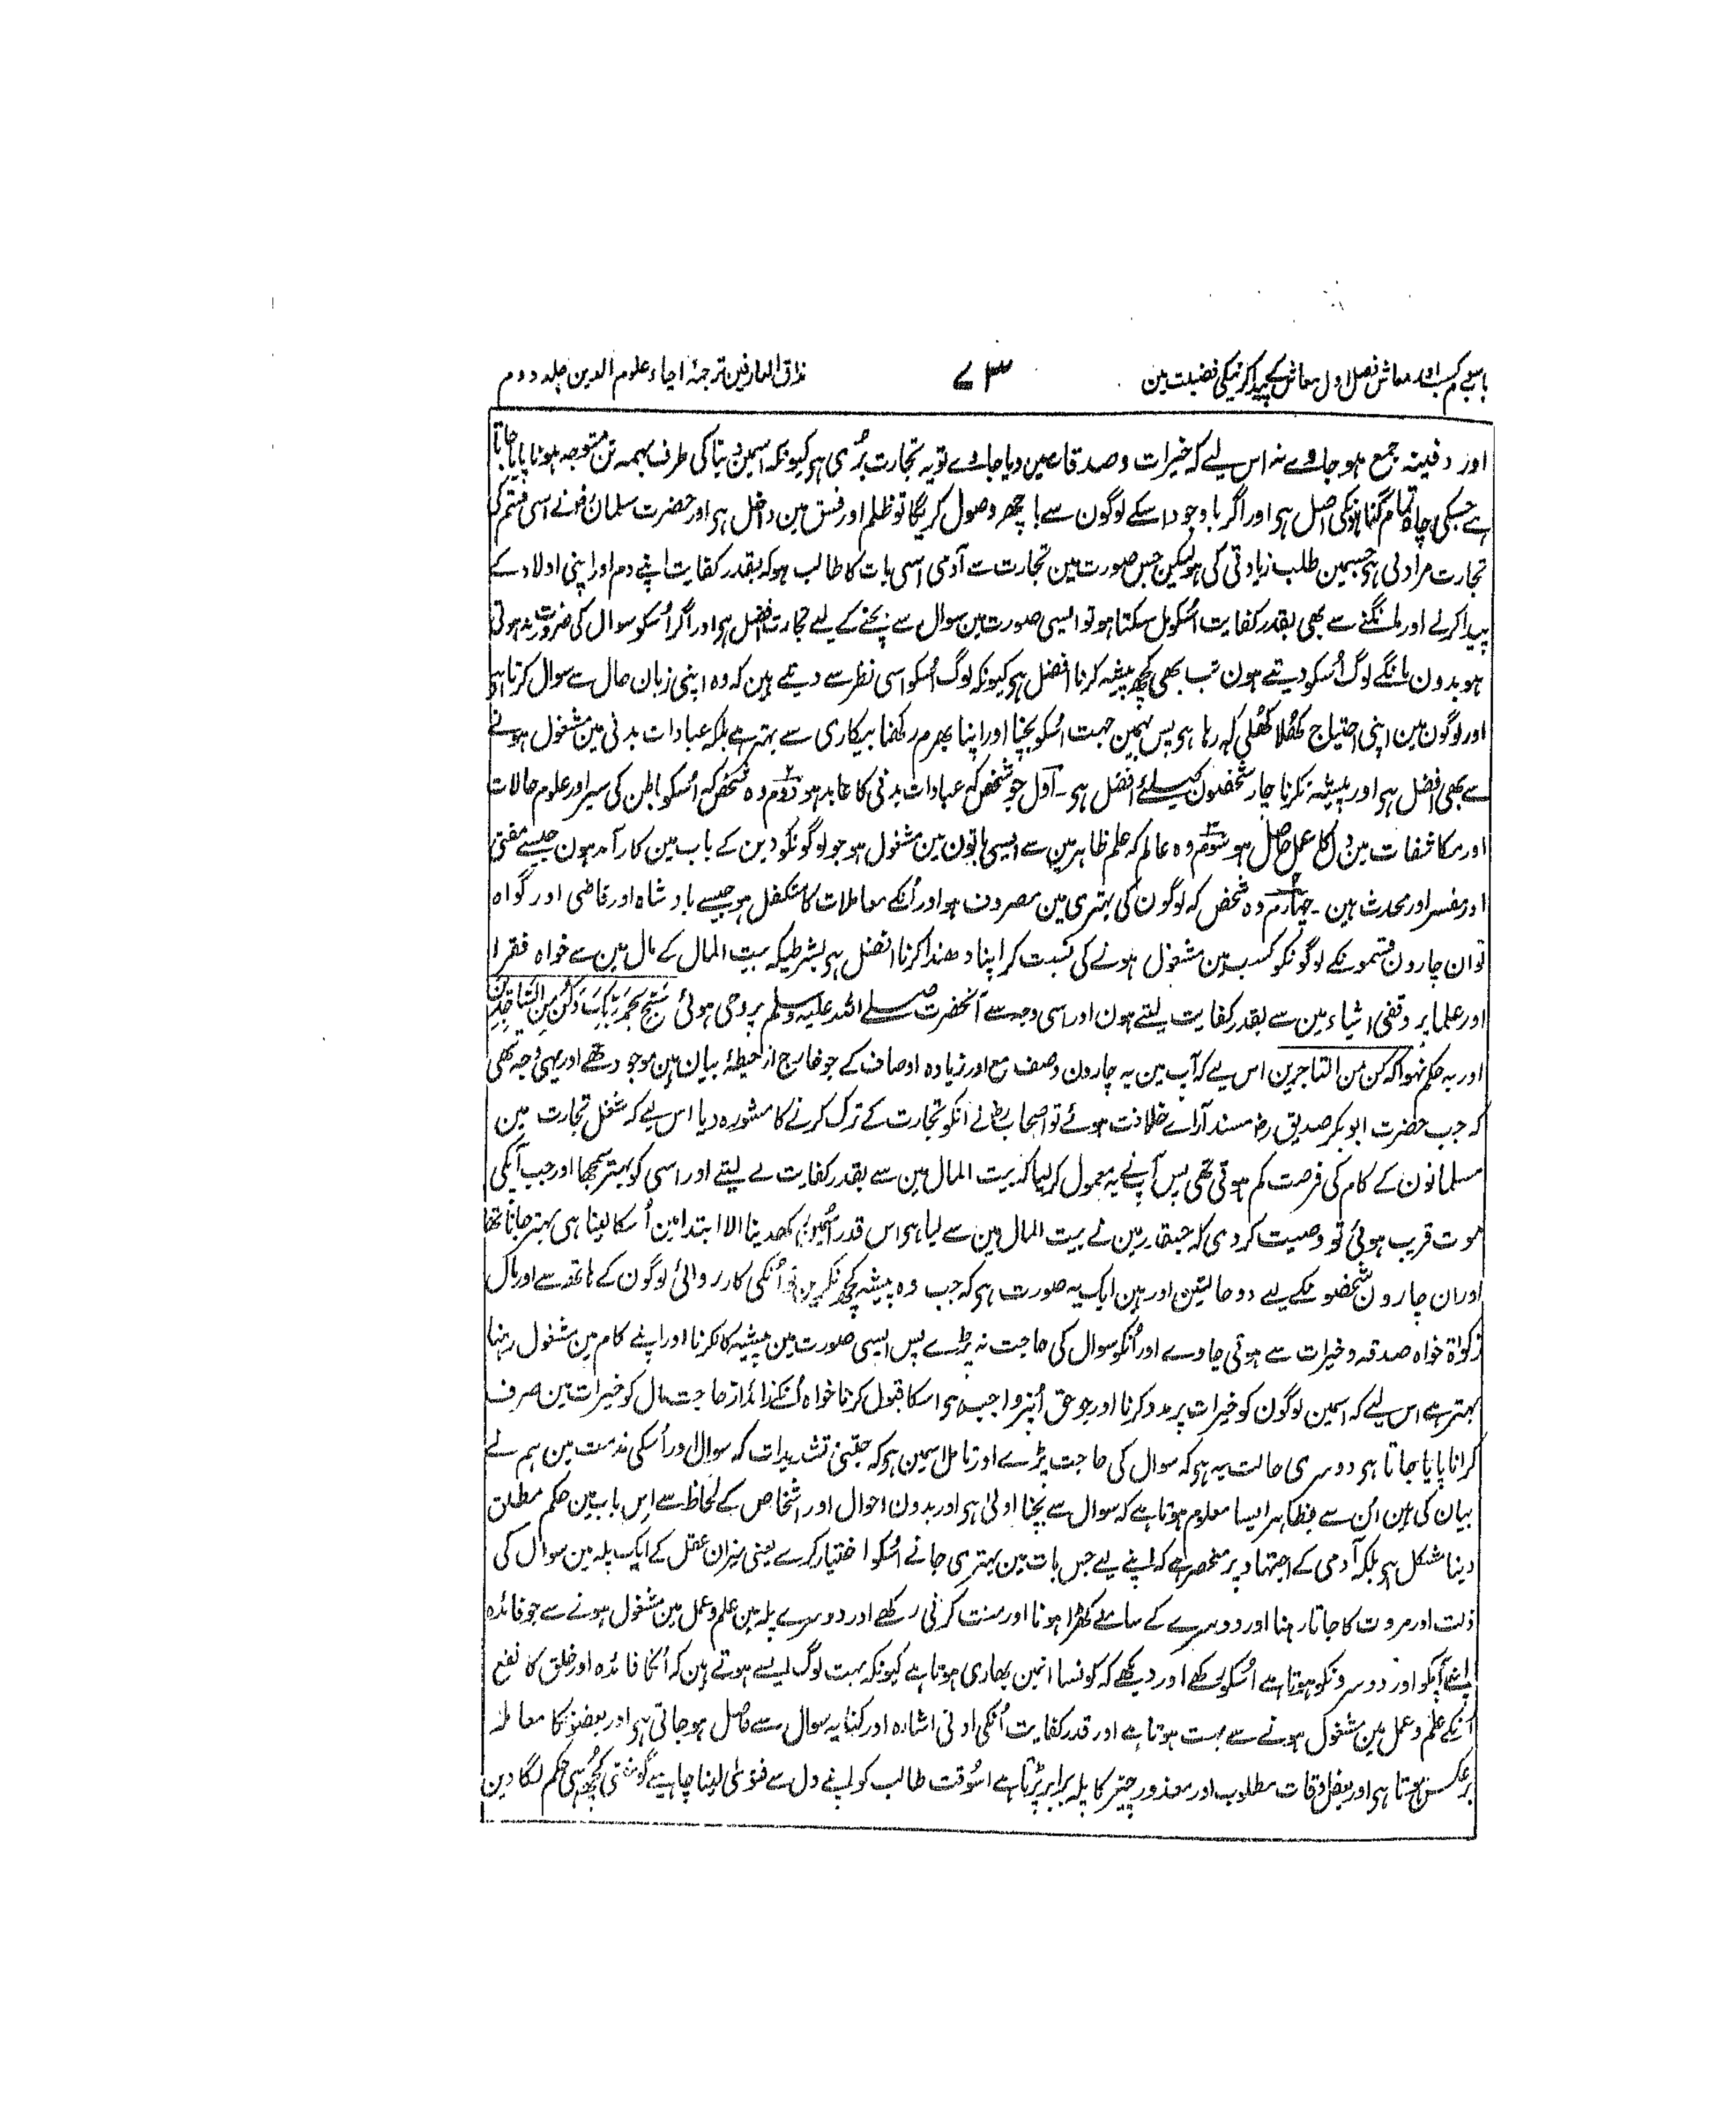 باب سوم کسب اور معاش فصل اول معاش کے پیدا کرنیکی فضیلت مین
۷۳
مذاق العارفین ترجمۂ احیاء علوم الدین جلد دوم
اور دفینہ جمع ہو جاوے نہ اس لیے کہ خیرات و صدقات مین دیا جاوے تو یہ تجارت بُری ہی کیونکہ اسمین دنیا کی طرف ہمہ تن متوجہ ہونا پایا جاتا
ہے جسکی چاہ تمام گناہونکی اصل ہی اور اگر باوجود اسکے لوگون سے باچھر وصول کریگا تو ظلم اور فسق مین داخل ہی اور حضرت سلمان رض نے اسی قسم کی
تجارت مراد لی ہی جسمین طلب زیادتی کی ہو لیکن جس صورت مین تجارت سے آدمی اسی بات کا طالب ہو کہ بقدر کفایت اپنے دم اور اپنی اولاد کے
پیدا کرلے اور مانگنے سے بھی بقدر کفایت اُسکو مل سکتا ہو تو ایسی صورت مین سوال سے بچنے کے لیے تجارت افضل ہی اور اگر اُسکو سوال کی ضرورت نہ ہوتی
ہو بدون مانگے لوگ اُسکو دیتے ہون تب بھی کچھ پیشہ کرنا افضل ہی کیونکہ لوگ اُسکو اسی نظر سے دیتے ہین کہ وہ اپنی زبان حال سے سوال کرتا ہی
اور لوگون مین اپنی احتیاج کھُلا کھُلی کہ رہا ہی پس بہمین جہت اُسکو بچنا اور اپنا بھرم رکھنا بیکاری سے بہتر ہے بلکہ عبادات بدنی مین مشغول ہونے
سے بھی افضل ہی اور پیشہ نکرنا چار شخصون کیلئے افضل ہی ۔ اول جو شخص کہ عبادات بدنی کا عابد ہو دوم وہ شخص کہ اُسکو باطن کی سیر اور علوم حالات
اور مکاشفات مین دل کا عمل حاصل ہو سوم وہ عالم کہ علم ظاہر مین سے ایسی باتون مین مشغول ہو جو لوگونکو دین کے باب مین کارآمد ہون جیسے مفتی
اور مفسر اور محدث ہین ۔ چہارم وہ شخص کہ لوگون کی بہتری مین مصروف ہو اور اُنکے معاملات کا متکفل ہو جیسے بادشاہ اور قاضی اور گواہ
تو ان چارون قسمونکے لوگونکو کسب مین مشغول ہونے کی نسبت کر اپنا دھندا کرنا افضل ہی بشرطیکہ بیت المال کے مال مین سے خواہ فقرا
اور علما پر وقفی اشیاء مین سے بقدر کفایت لیتے ہون اور اسی وجہ سے آنحضرت صلے اللہ علیہ وسلم پر وحی ہوئی سَبِّح بِحَمدِ رَبِّکَ وَکُن مِنَ السَّاجِدِینَ
اور یہ حکم نہوا کہ کن من التاجرین اس لیے کہ آپ مین یہ چارون وصف مع اور زیادہ اوصاف کے جو خارج از حیطۂ بیان ہین موجود تھے اور یہی وجہ تھی
کہ جب حضرت ابوبکر صدیق رض مسند آراے خلافت ہوئے تو اصحاب رض نے انکو تجارت کے ترک کرنے کا مشورہ دیا اس لیے کہ شغل تجارت مین
مسلمانون کے کام کی فرصت کم ہوتی تھی پس آپنے یہ معمول کرلیا کہ بیت المال مین سے بقدر کفایت لے لیتے اور اسی کو بہتر سمجھا اور جب آپکی
موت قریب ہوئی تو وصیت کر دی کہ جسقدر مین نے بیت المال مین سے لیا ہی اس قدر اُسمین رکھدینا الا ابتدا مین اُسکا لینا ہی بہتر جانا تھا
اور ان چارون شخصونکے لیے دو حالتین اور ہین ایک یہ صورت ہی کہ جب وہ پیشہ کچھ نکرین تو اُنکی کارروائی لوگون کے ہاتھ سے اور مال
زکوٰۃ خواہ صدقہ و خیرات سے ہوتی جاوے اور اُنکو سوال کی حاجت نہ پڑے پس ایسی صورت مین پیشہ کا نکرنا اور اپنے کام مین مشغول رہنا
بہتر ہے اس لیے کہ اسمین لوگون کو خیرات پر مدد کرنا اور جو حق اُنپر واجب ہی اسکا قبول کرنا خواہ اُنکے زائد از حاجت مال کو خیرات مین صرف
کرانا پایا جاتا ہی دوسری حالت یہ ہی کہ سوال کی حاجت پڑے اور تامل اسمین ہی کہ جتنی تشدیدات کہ سوال اور اُسکی مذمت مین ہم نے
بیان کی ہین اُن سے بظاہر ایسا معلوم ہوتا ہے کہ سوال سے بچنا اولیٰ ہی اور بدون احوال اور اشخاص کے لحاظ سے اس باب مین حکم مطلق
دینا مشکل ہی بلکہ آدمی کے اجتہاد پر منحصر ہے کہ اپنے لیے جس بات مین بہتری جانے اُسکو اختیار کرے یعنی میزان عقل کے ایک پلہ مین سوال کی
ذلت اور مروت کا جاتا رہنا اور دوسرے کے سامنے کھڑا ہونا اور منت کرنی رکھے اور دوسرے پلہ مین علم و عمل مین مشغول ہونے سے جو فائدہ
اپنے آپکو اور دوسرونکو ہوتا ہے اُسکو رکھے اور دیکھے کہ کونسا انمین بھاری ہوتا ہے کیونکہ بہت لوگ ایسے ہوتے ہین کہ اُنکا فائدہ اور خلق کا نفع
اُنکے علم و عمل مین مشغول ہونے سے بہت ہوتا ہے اور قدر کفایت اُنکی ادنی اشارہ اور کنایہ سوال سے حاصل ہو جاتی ہی اور بعضونکا معاملہ
برعکس ہوتا ہی اور بعض اوقات مطلوب اور محذور چیز کا پلہ برابر پڑتا ہے اسوقت طالب کو اپنے دل سے فتویٰ لینا چاہیئے گو مفتی کچھ ہی حکم لگا دین